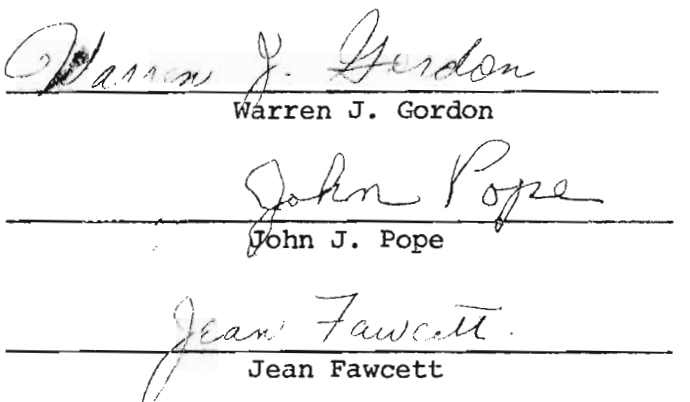 Warren J. Gordon
Warren J. Gordon
John Pope
John J. Pope
Jean Fawcett.
Jean Fawcett